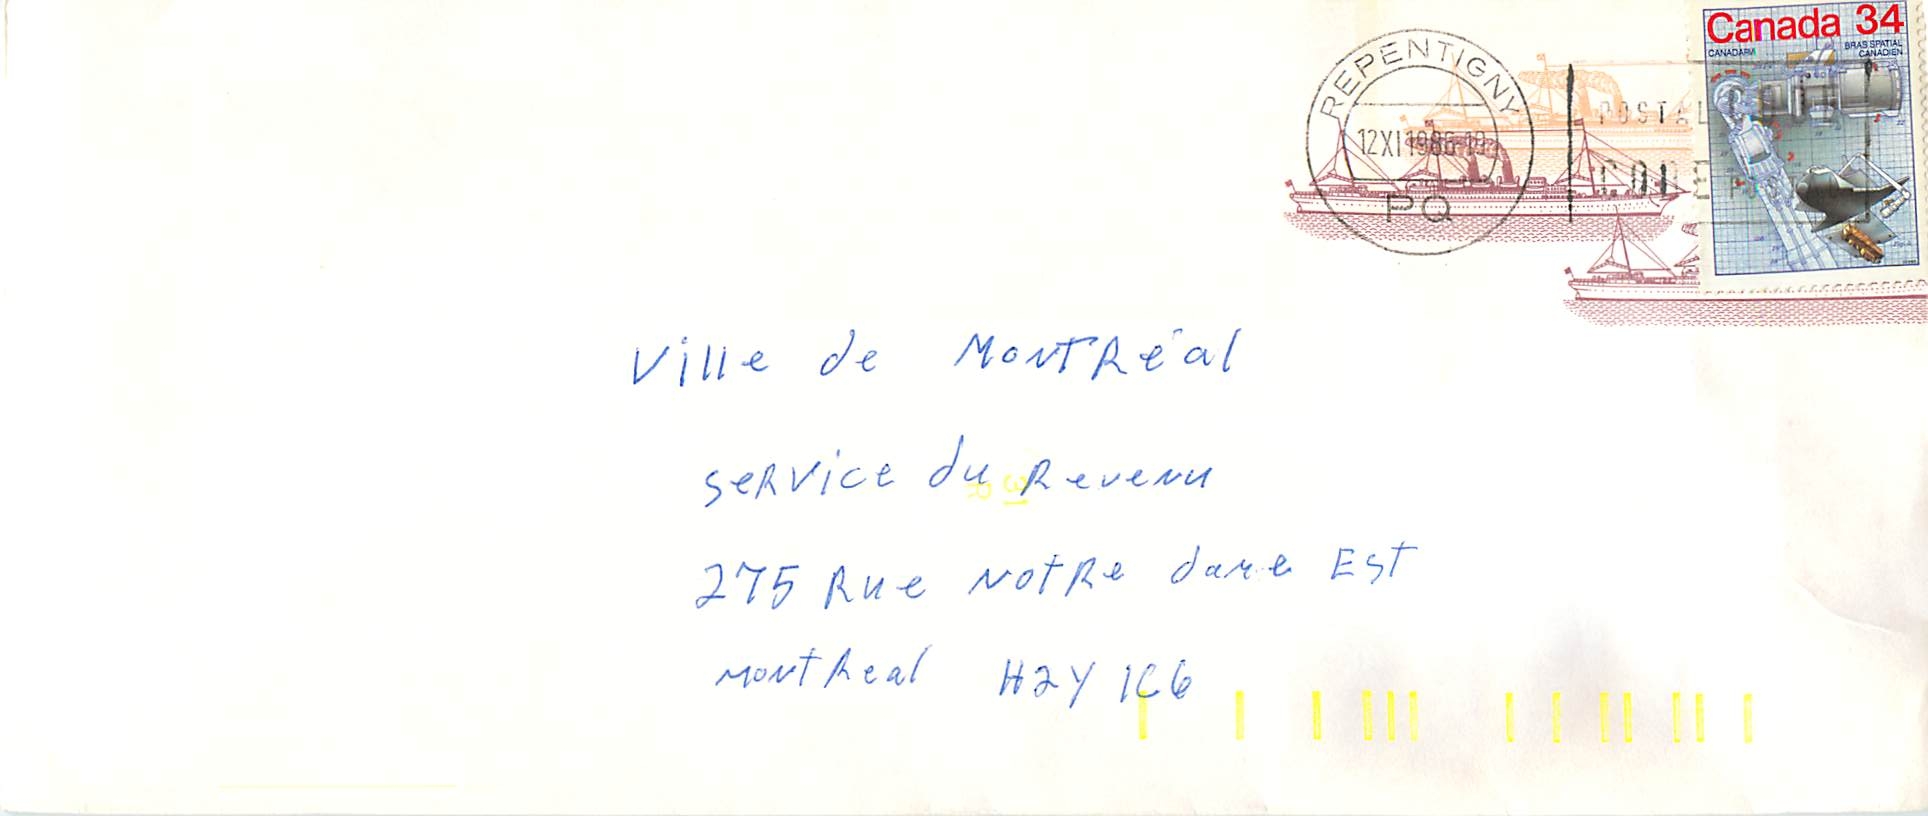 Canada 34
CANADARM
BRAS SPATIAL
CANADIEN
REPENTIGNY
12 XI 1986
PQ
POSTAL
CODE
Ville de Montréal
Service du Revenu
275 Rue Notre dame Est
Montreal H2Y 1C6
31
R